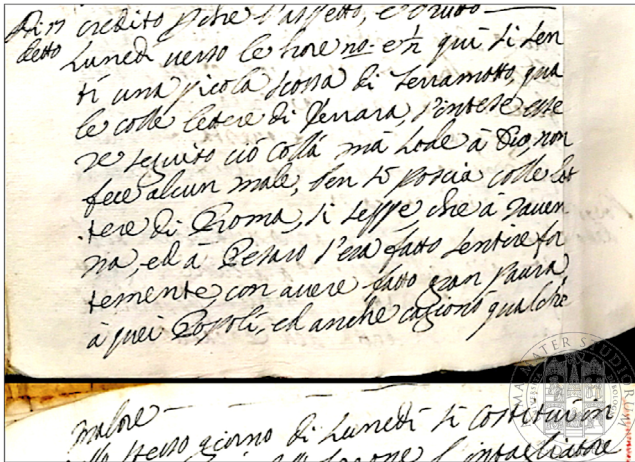 credito p che l'aspetto, e
Di 17
detto
Lunedì verso le hore no: e ½ quì si sen
tì una picola scossa di Terramotto, qua
le colle letere di Ferrara, s'intese esse
re seguito ciò collà mà lode à Dio, non
fece alcun male, ben sì poscia colle let
tere di Roma, si seppe, che à Raven
na, ed à Pesaro s'era fatto sentire for
temente, con avere fatto gran paura
à quei Popoli, ed anche cagionò qualche
malore
stesso giorno di Lunedì si costituì in
l'intagliatore
ALMA MATER STUDIORUM